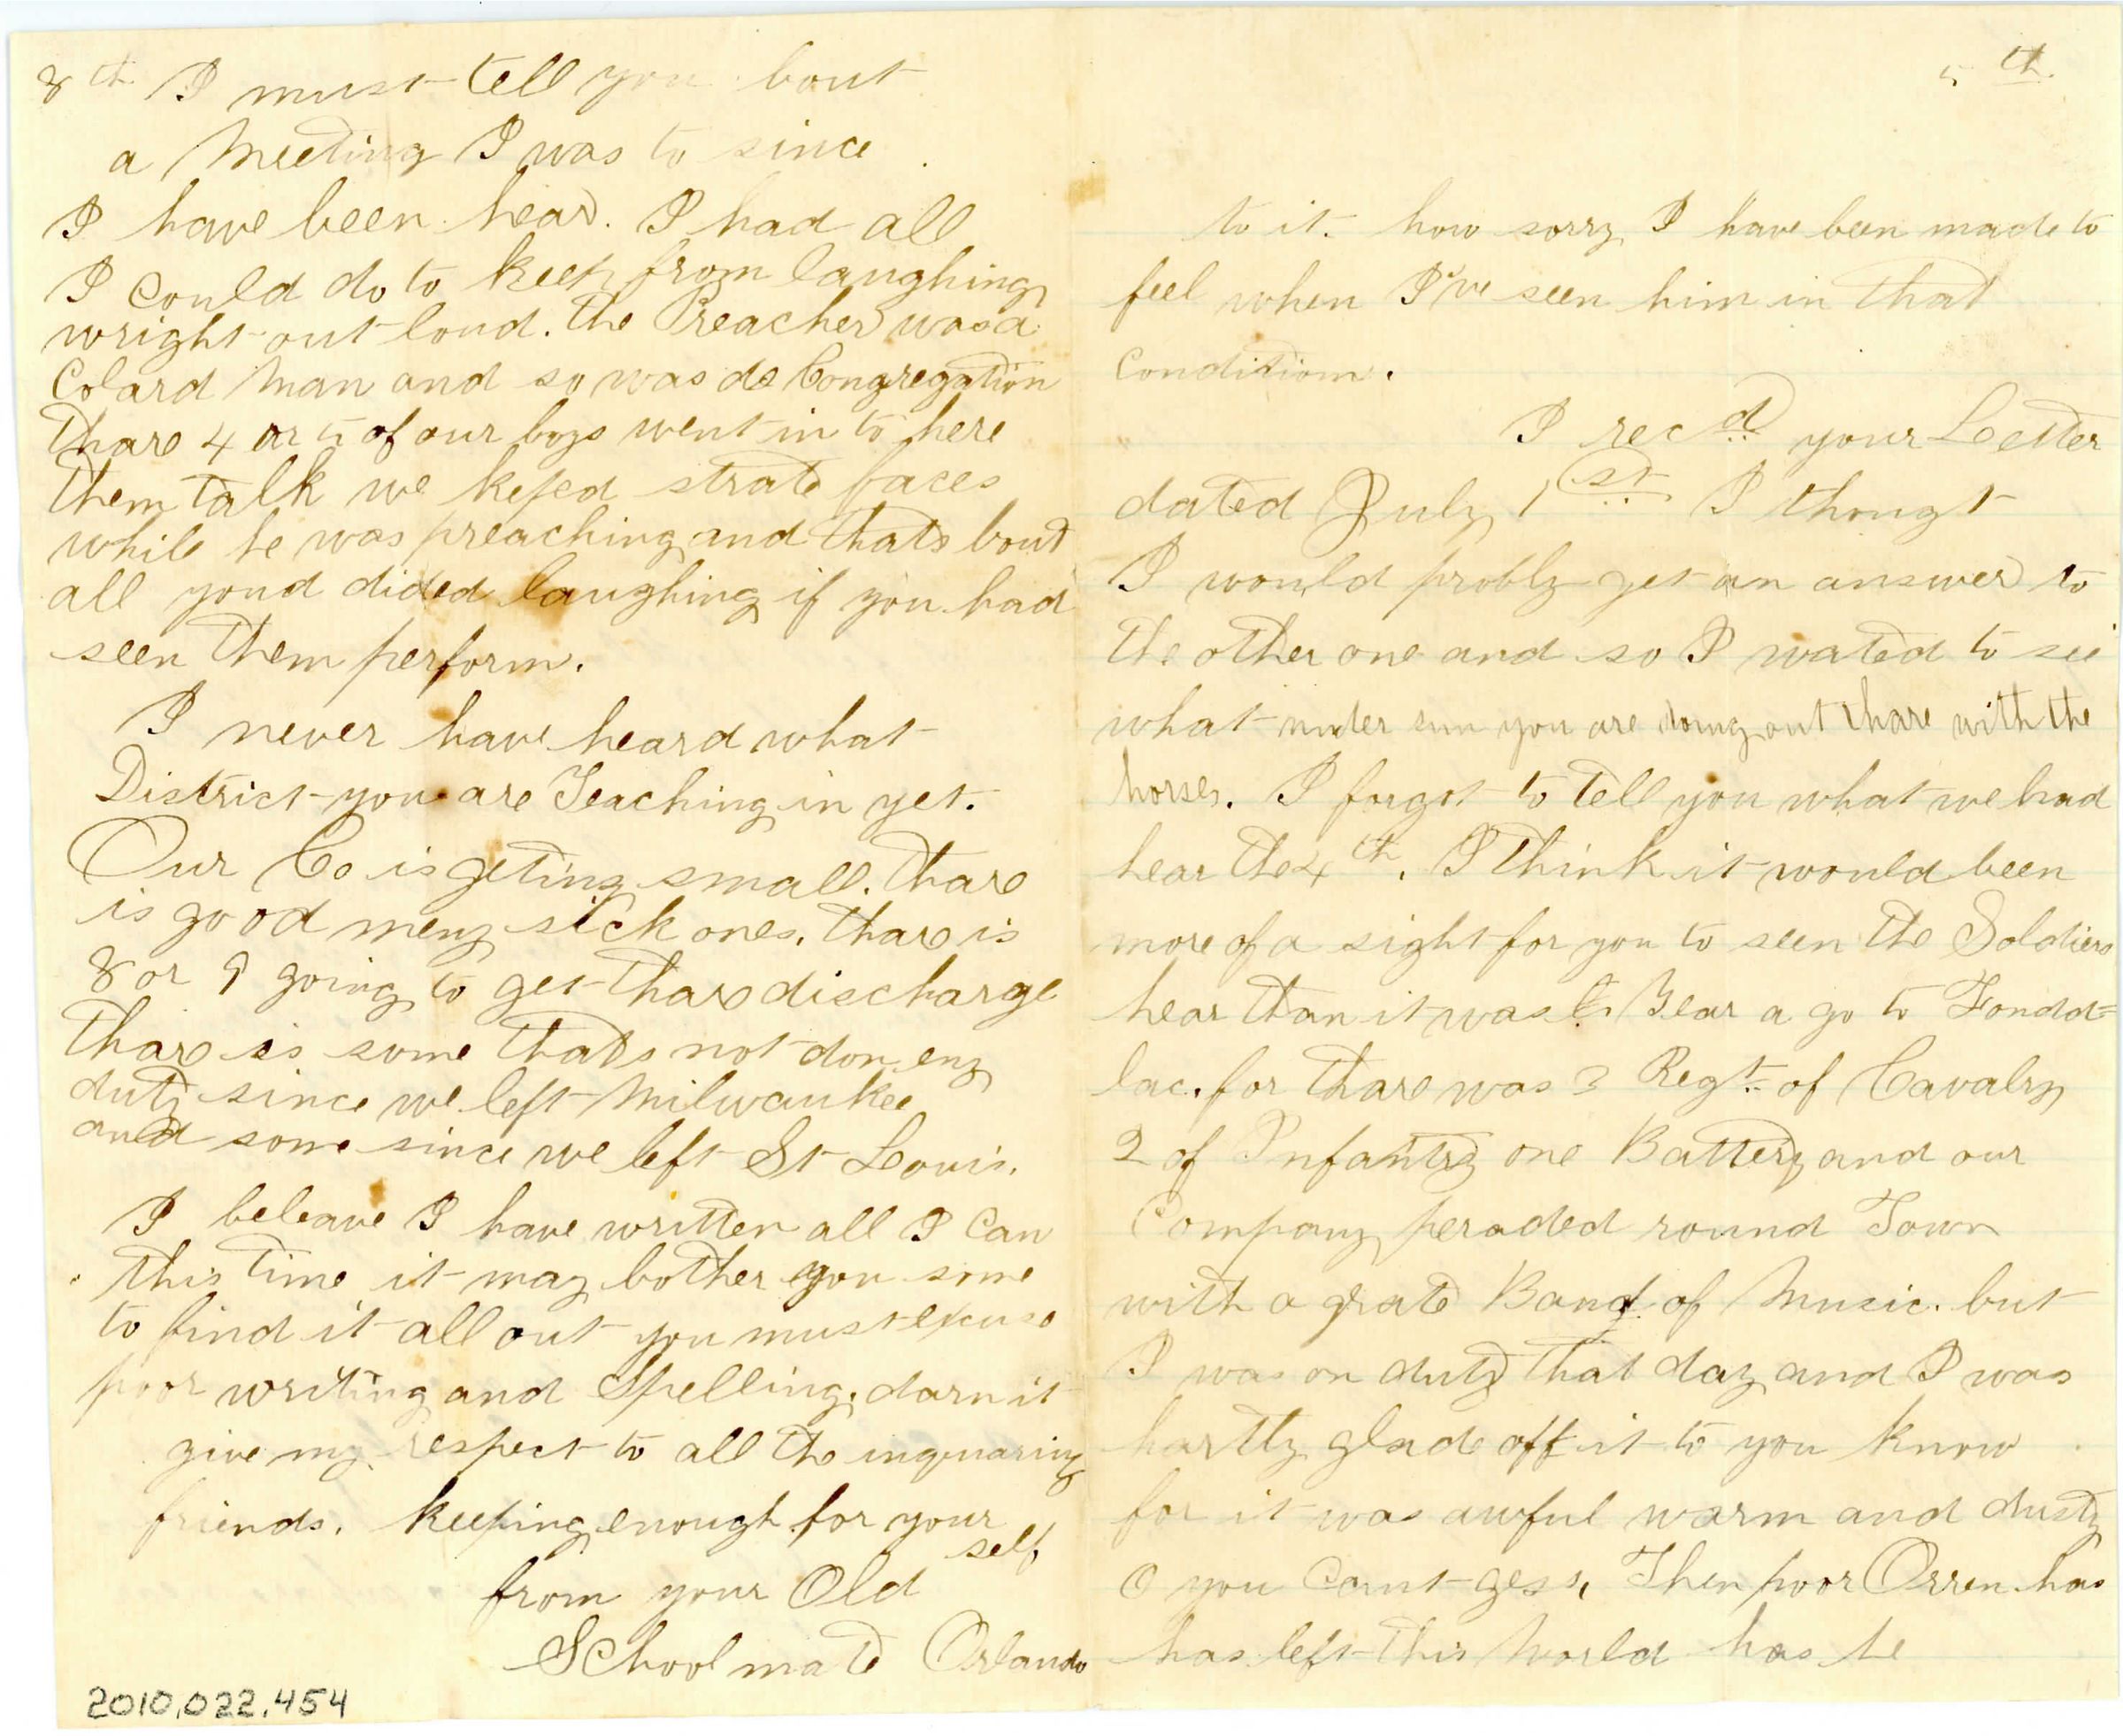 8th I must tell you bout
a Meeting I was to since
I have been hear. I had all
I Could do to keep from laughing
wright out loud. the Preacher was a
Colard Man and so was de Congregation
thare 4 or 5 of our boys went in to here
them talk we keped strate faces
while he was preaching and thats bout
all youd dided laughing if you had
seen them perform.
I never have heard what
District you are Teaching in yet.
Our Co is geting small. thare
is good meny sick ones. thare is
8 or 9 going to get thare discharge
thare is some thats not don eny
duty since we left Milwaukee
and some since we left St Louis.
I beleave I have written all I Can
this time it may bother you some
to find it all out you must excuse
poor writing and Spelling. darn it
give my respect to all the inquaring
friends. keeping enough for your
self
from your Old
School mate Orlando
2010.022.454
5th
to it. how sorry I have been made to
feel when I've seen him in that
Condition.
I recd your Letter
dated July 1st I thougt
I would probly get an answer to
the other one and so I wated to see
what under sun you are doing out thare with the
horses. I forgot to tell you what we had
hear the 4th. I think it would been
more of a sight for you to seen the Soldiers
hear than it was Year a go to Fondd=
lac. for thare was 3 Regt. of Cavalry
2 of Infantry one Battery and our
Company peraded round Town
with a grate Band of Music. but
I was on duty that day and I was
hartly glade off it to you know
for it was awful warm and dusty
O you Cant gess. Then poor Orren has
has left this World has he